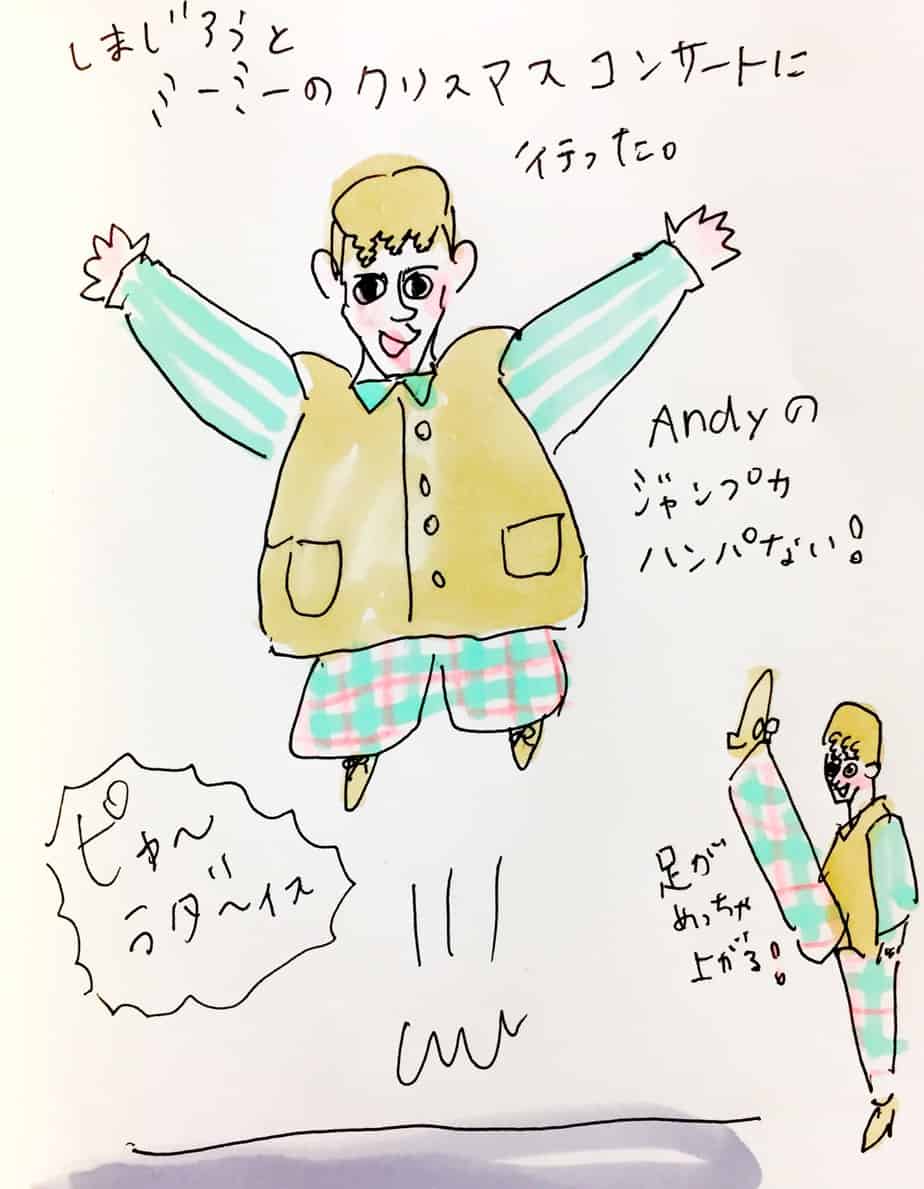 しまじろうと
ミーミーのクリスマスコンサートに
行った。
Andyの
ジャンプ力
ハンパない!
ピャ〜
ラダ〜イス
足が
めっちゃ
上がる!